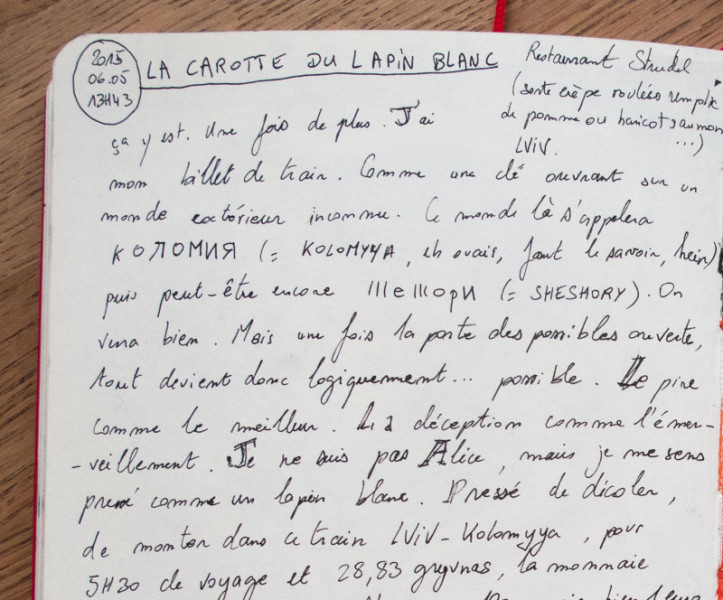 2015
06.05
13H43
LA CAROTTE DU LAPIN BLANC
Restaurant Strudel
(sorte crèpe roulées remplie
de pomme ou haricots saumon
...)
LViV.
ça y est. Une fois de plus. J'ai
mon billet de train. Comme une clé ouvrant sur un
monde extérieur inconnu. Ce monde là s'appelera
КОЛОМИЯ (= KOLOMYYA, eh ouais, faut le savoir, hein)
puis peut-être encore Шешори (= SHESHORY). On
verra bien. Mais une fois la porte des possibles ouverte,
tout devient donc logiquement... possible. Le pire
comme le meilleur. La déception comme l'émer-
-veillement. Je ne suis pas Alice, mais je me sens
pressé comme un lapin blanc. Pressé de décoler,
de monter dans ce train LViV-Kolomyya, pour
5H30 de voyage et 28,83 gryvnas, la monnaie